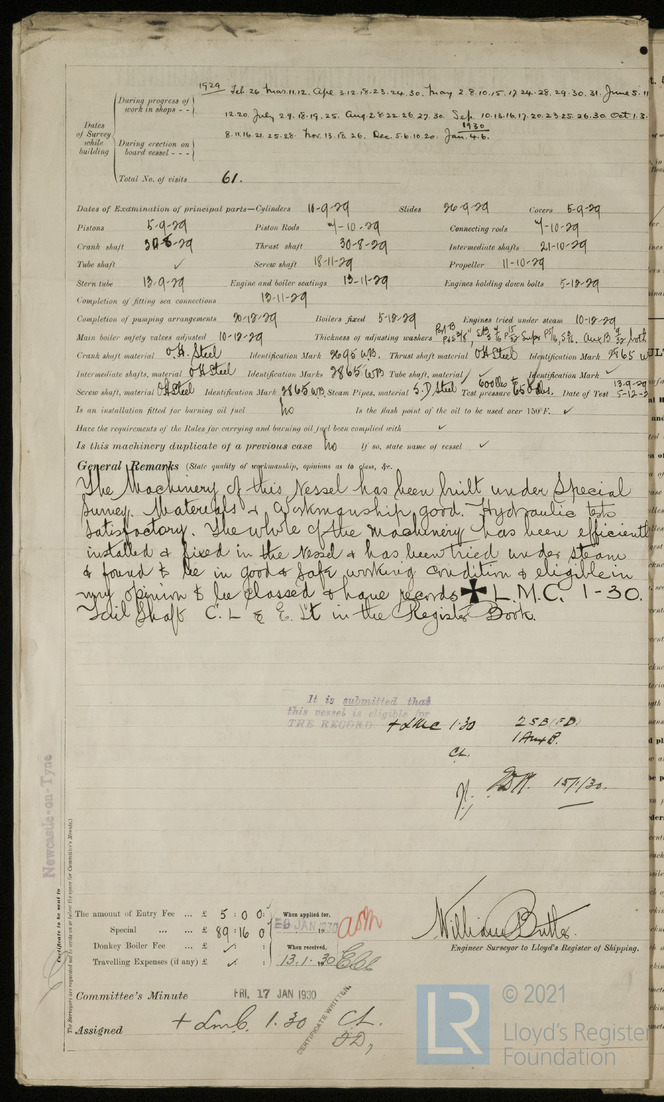 1929 Feb. 26 Mar. 11. 12. Apl 2. 12. 18. 23. 24. 30. May 2. 8. 10. 15. 17. 24. 28. 29. 30. 31. June 5. 11
During progress of work in shops - -
12. 20. July 2. 9. 18. 19. 25. Aug. 2. 8. 22. 26. 27. 30. Sep. 10. 13. 16. 17. 20. 23. 25. 26. 30. Oct 1. 3.
Dates of Survey while building
During erection on board vessel - - -
8. 11. 16. 21. 25. 28. Nov. 13. 18. 26. Dec. 5. 6. 10. 20. 1930 Jan. 4. 6.
Total No. of visits 61.
Dates of Examination of principal parts—Cylinders 11-9-29 Slides 26-9-29 Covers 5-9-29
Pistons 5-9-29 Piston Rods 7-10-29 Connecting rods 7-10-29
Crank shaft 30-8-29 Thrust shaft 30-8-29 Intermediate shafts 21-10-29
Tube shaft ✓ Screw shaft 18-11-29 Propeller 11-10-29
Stern tube 13-9-29 Engine and boiler seatings 13-11-29 Engines holding down bolts 5-12-29
Completion of fitting sea connections 13-11-29
Completion of pumping arrangements 20-12-29 Boilers fixed 5-12-29 Engines tried under steam 10-12-29
Main boiler safety valves adjusted 10-12-29 Thickness of adjusting washers
Crank shaft material O.H. Steel Identification Mark 2695 WB. Thrust shaft material O.H Steel Identification Mark 2965 W
Intermediate shafts, material O.H Steel Identification Marks 2865 WB Tube shaft, material ✓ Identification Mark ✓
Screw shaft, material O.H Steel Identification Mark 2865 WB Steam Pipes, material S.D. Steel Test pressure 600 lbs & 658 lbs. Date of Test 13-9-29 5-12-2
Is an installation fitted for burning oil fuel no Is the flash point of the oil to be used over 150°F. ✓
Have the requirements of the Rules for carrying and burning oil fuel been complied with ✓
Is this machinery duplicate of a previous case no If so, state name of vessel ✓
General Remarks (State quality of workmanship, opinions as to class, &c.
The Machinery of this Vessel has been built under Special
Survey. Materials & Workmanship good. Hydraulic tests
satisfactory. The whole of the Machinery has been efficiently
installed & fixed in the Vessel & has been tried under steam
& found to be in good & safe working condition & eligible in
my opinion to be classed & have records ✠ L.M.C. 1-30.
Tail Shaft C.L & E. St in the Register Book.
It is submitted that
this vessel is eligible for
THE RECORD. + LMC 1·30 2 S B (F D)
1 Aux B.
CL.
15/1/30.
Newcastle-on-Tyne
Certificate to be sent to
The Surveyors are requested not to write on or below the space for Committee's Minute.
The amount of Entry Fee ... £ 5 : 0 0 : When applied for,
Special ... ... £ 89 : 16 0 JAN 1930
Donkey Boiler Fee ... £ ✓ : : When received,
Travelling Expenses (if any) £ ✓ : : 13.1.30
William Butts
Engineer Surveyor to Lloyd's Register of Shipping.
Committee's Minute FRI. 17 JAN 1930
CERTIFICATE WRITTEN
Assigned + LMC. 1.30 CL.
F.D,
LR
© 2021
Lloyd's Register
Foundation